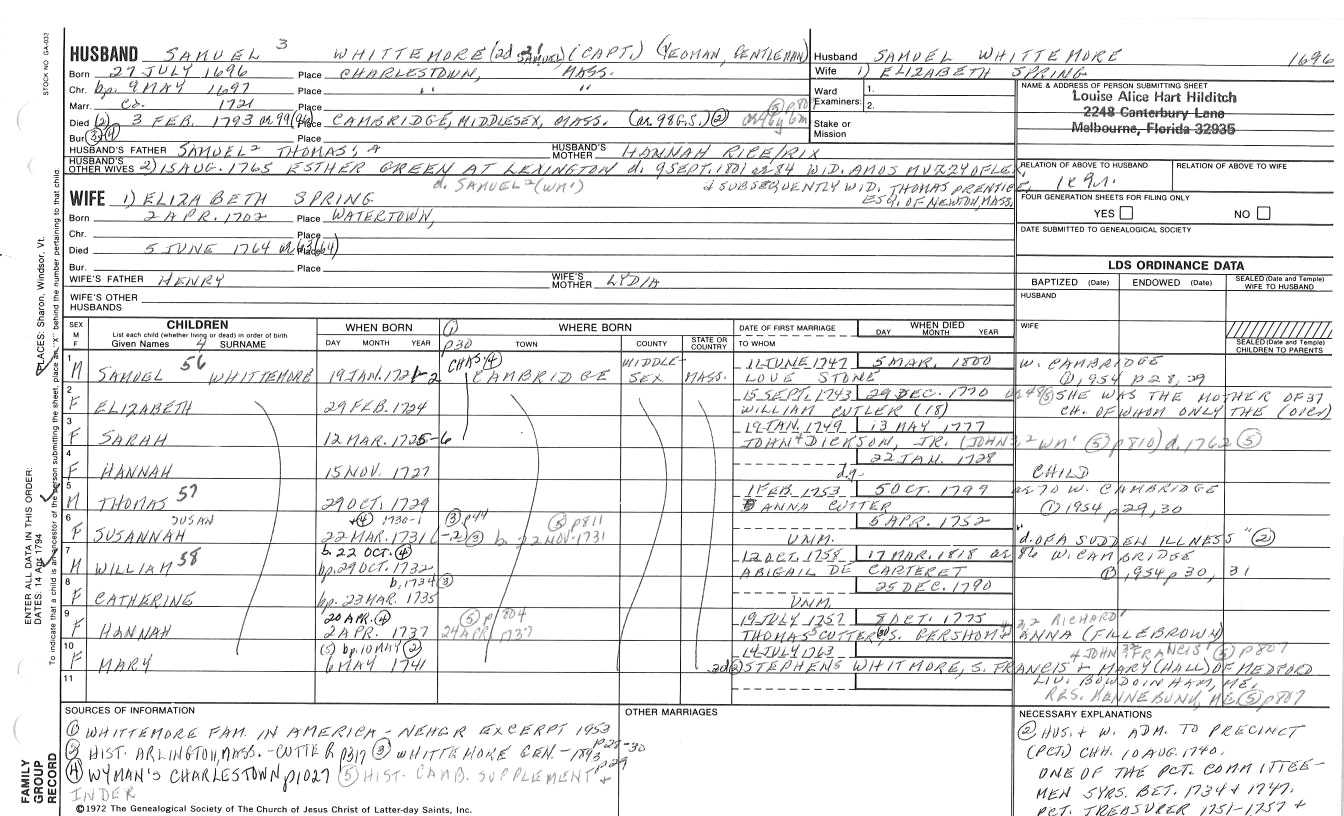 STOCK NO. GA-032
HUSBAND SAMUEL 3 WHITTEMORE (2d SAMUEL) (CAPT.) (YEOMAN, GENTLEMAN)
Born 27 JULY 1696 Place CHARLESTOWN, MASS.
Chr. bp. 9 MAY 1697 Place " "
Marr. Ca. 1721 Place
Died (2) 3 FEB. 1793 or 99 Place CAMBRIDGE, MIDDLESEX, MASS. (or 98 G.S.) (2)
Bur. (3)+(4) Place
HUSBAND'S FATHER SAMUEL 2 THOMAS 1, A HUSBAND'S MOTHER HANNAH RICE/RIX
HUSBAND'S OTHER WIVES 2) 15 AUG. 1765 ESTHER GREEN AT LEXINGTON d. 9 SEPT. 1801 or 84 WID. AMOS MUZZY OF LEX.
d. SAMUEL 2 (WM 1) + SUBSEQUENTLY WID. THOMAS PRENTICE,
ESQ. OF NEWTON, MASS.
WIFE 1) ELIZABETH SPRING
Born 2 APR. 1702 Place WATERTOWN,
Chr. Place
Died 5 JUNE 1764 or (63/64) Place
Bur. Place
WIFE'S FATHER HENRY WIFE'S MOTHER LYDIA
WIFE'S OTHER HUSBANDS
Husband SAMUEL WHITTEMORE 1696
Wife 1) ELIZABETH SPRING
Ward Examiners: 1.
2.
Stake or Mission
NAME & ADDRESS OF PERSON SUBMITTING SHEET
Louise Alice Hart Hilditch
2248 Canterbury Lane
Melbourne, Florida 32935
RELATION OF ABOVE TO HUSBAND RELATION OF ABOVE TO WIFE
FOUR GENERATION SHEETS FOR FILING ONLY
YES NO
DATE SUBMITTED TO GENEALOGICAL SOCIETY
LDS ORDINANCE DATA
BAPTIZED (Date) ENDOWED (Date) SEALED (Date and Temple) WIFE TO HUSBAND
HUSBAND
WIFE
SEALED (Date and Temple) CHILDREN TO PARENTS
SEX M F CHILDREN List each child (whether living or dead) in order of birth Given Names 4 SURNAME
WHEN BORN DAY MONTH YEAR
(1) p30 WHERE BORN TOWN COUNTY STATE OR COUNTRY
DATE OF FIRST MARRIAGE TO WHOM
WHEN DIED DAY MONTH YEAR
1 M SAMUEL 56 WHITTEMORE 19 JAN. 1721-2 CHAS. (4) CAMBRIDGE MIDDLE-SEX MASS. 11 JUNE 1747 5 MAR. 1800 W. CAMBRIDGE
LOVE STONE (1), 1954 p 28, 29
2 F ELIZABETH 29 FEB. 1724 15 SEPT. 1743 29 DEC. 1770 or 48 (5) SHE WAS THE MOTHER OF 37
WILLIAM CUTLER (18) CH. OF WHOM ONLY THE (over)
3 F SARAH 12 MAR. 1725-6 19 JAN. 1749 13 MAY 1777
JOHN 4 DICKSON, JR. (JOHN 3, 2 WM 1 (5) p810) d. 1762 (5)
4 F HANNAH 15 NOV. 1727 22 JAN. 1728
d.y. CHILD
5 M THOMAS 57 29 OCT. 1729 1 FEB. 1753 5 OCT. 1799 ae 70 W. CAMBRIDGE
ANNA CUTTER (1) 1954 p 29, 30
6 F SUSANNAH SUSAN +(4) 1730-1 22 MAR. 1731 (-2)(3) (3) p44 b. 22 NOV. 1731 (5) p811 5 APR. 1752
UNM. "d. OF A SUDDEN ILLNESS" (2)
7 M WILLIAM 58 b. 22 OCT. (4) bp. 29 OCT. 1732 12 OCT. 1758 17 MAR. 1818 ae 86 W. CAMBRIDGE
ABIGAIL DE CARTERET (1), 1954 p 30, 31
8 F CATHERINE b. 1734 (3) bp. 23 MAR. 1735 25 DEC. 1790
UNM.
9 F HANNAH 20 APR. (4) 2 APR. 1737 (5) p 804 24 APR 1737 19 JULY 1757 8 OCT. 1775 RICHARD 1
THOMAS 5 CUTTER, S. GERSHOM 4 + ANNA (FILLEBROWN)
10 F MARY (5) bp. 10 MAY (2) 6 MAY 1741 14 JULY 1763 + JOHN FRANCIS 1 (5) p 807
2d (2) STEPHEN 5 WHITMORE, S. FRANCIS 4 + MARY (HALL) OF MEDFORD
11 LIV. BOWDOINHAM, ME.
RES. KENNEBUNK, ME (5) p807
SOURCES OF INFORMATION
(1) WHITTEMORE FAM. IN AMERICA - NEHER EXCERPT 1953 p 27-30
(2) HIST. ARLINGTON, MASS. - CUTTER p317 (3) WHITTEMORE GEN. - 1893 p 29
(4) WYMAN'S CHARLESTOWN p1027 (5) HIST. CAMB. SUPPLEMENT +
INDEX
OTHER MARRIAGES
NECESSARY EXPLANATIONS
(2) HUS. + W. ADM. TO PRECINCT
(PCT.) CHH. 10 AUG. 1740.
ONE OF THE PCT. COMMITTEE-
MEN 5 YRS. BET. 1734 + 1747.
PCT. TREASURER 1751-1757 +
©1972 The Genealogical Society of The Church of Jesus Christ of Latter-day Saints, Inc.
FAMILY GROUP RECORD
ENTER ALL DATA IN THIS ORDER:
DATES: 14 Apr 1794
PLACES: Sharon, Windsor, Vt.
To indicate that a child is an ancestor of the person submitting the sheet, place an "X" behind the number pertaining to that child.